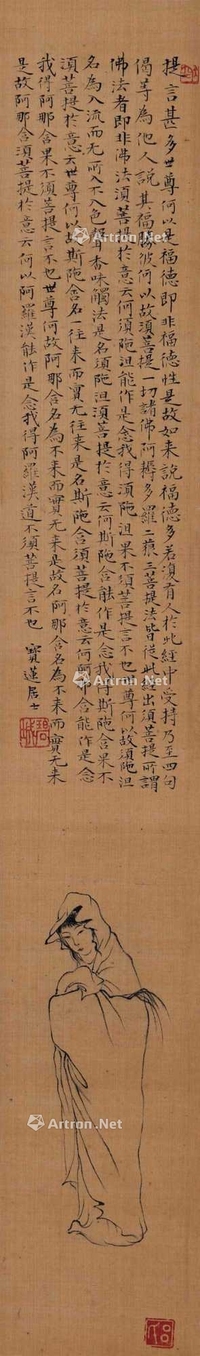 提言甚多世尊何以是福德即非福德性是故如来說福德多若復有人於此經中受持乃至四句
偈等為他人說其福勝彼何以故須菩提一切諸佛阿耨多羅三藐三菩提法皆從此經出須菩提所謂
佛法者即非佛法須菩提於意云何須陁洹能作是念我得須陁洹果不須菩提言不也世尊何以故須陁洹
名為入流而无所入不入色聲香味觸法是名須陁洹須菩提於意云何斯陁含能作是念我得斯陁含果不
須菩提於意云世尊何以故斯陁含名一往来而實无往来是名斯陁含須菩提於意云何阿那含能作是念
我得阿那含果不須菩提言不也世尊何故阿那含名為不来而實无来是故名阿那含名為不来而實无来
是故阿那含須菩提於意云何以阿羅漢能作是念我得阿羅漢道不須菩提言不也 寶蓮居士
Artron.Net
Artron.Net
Artron.Net
Artron.Net